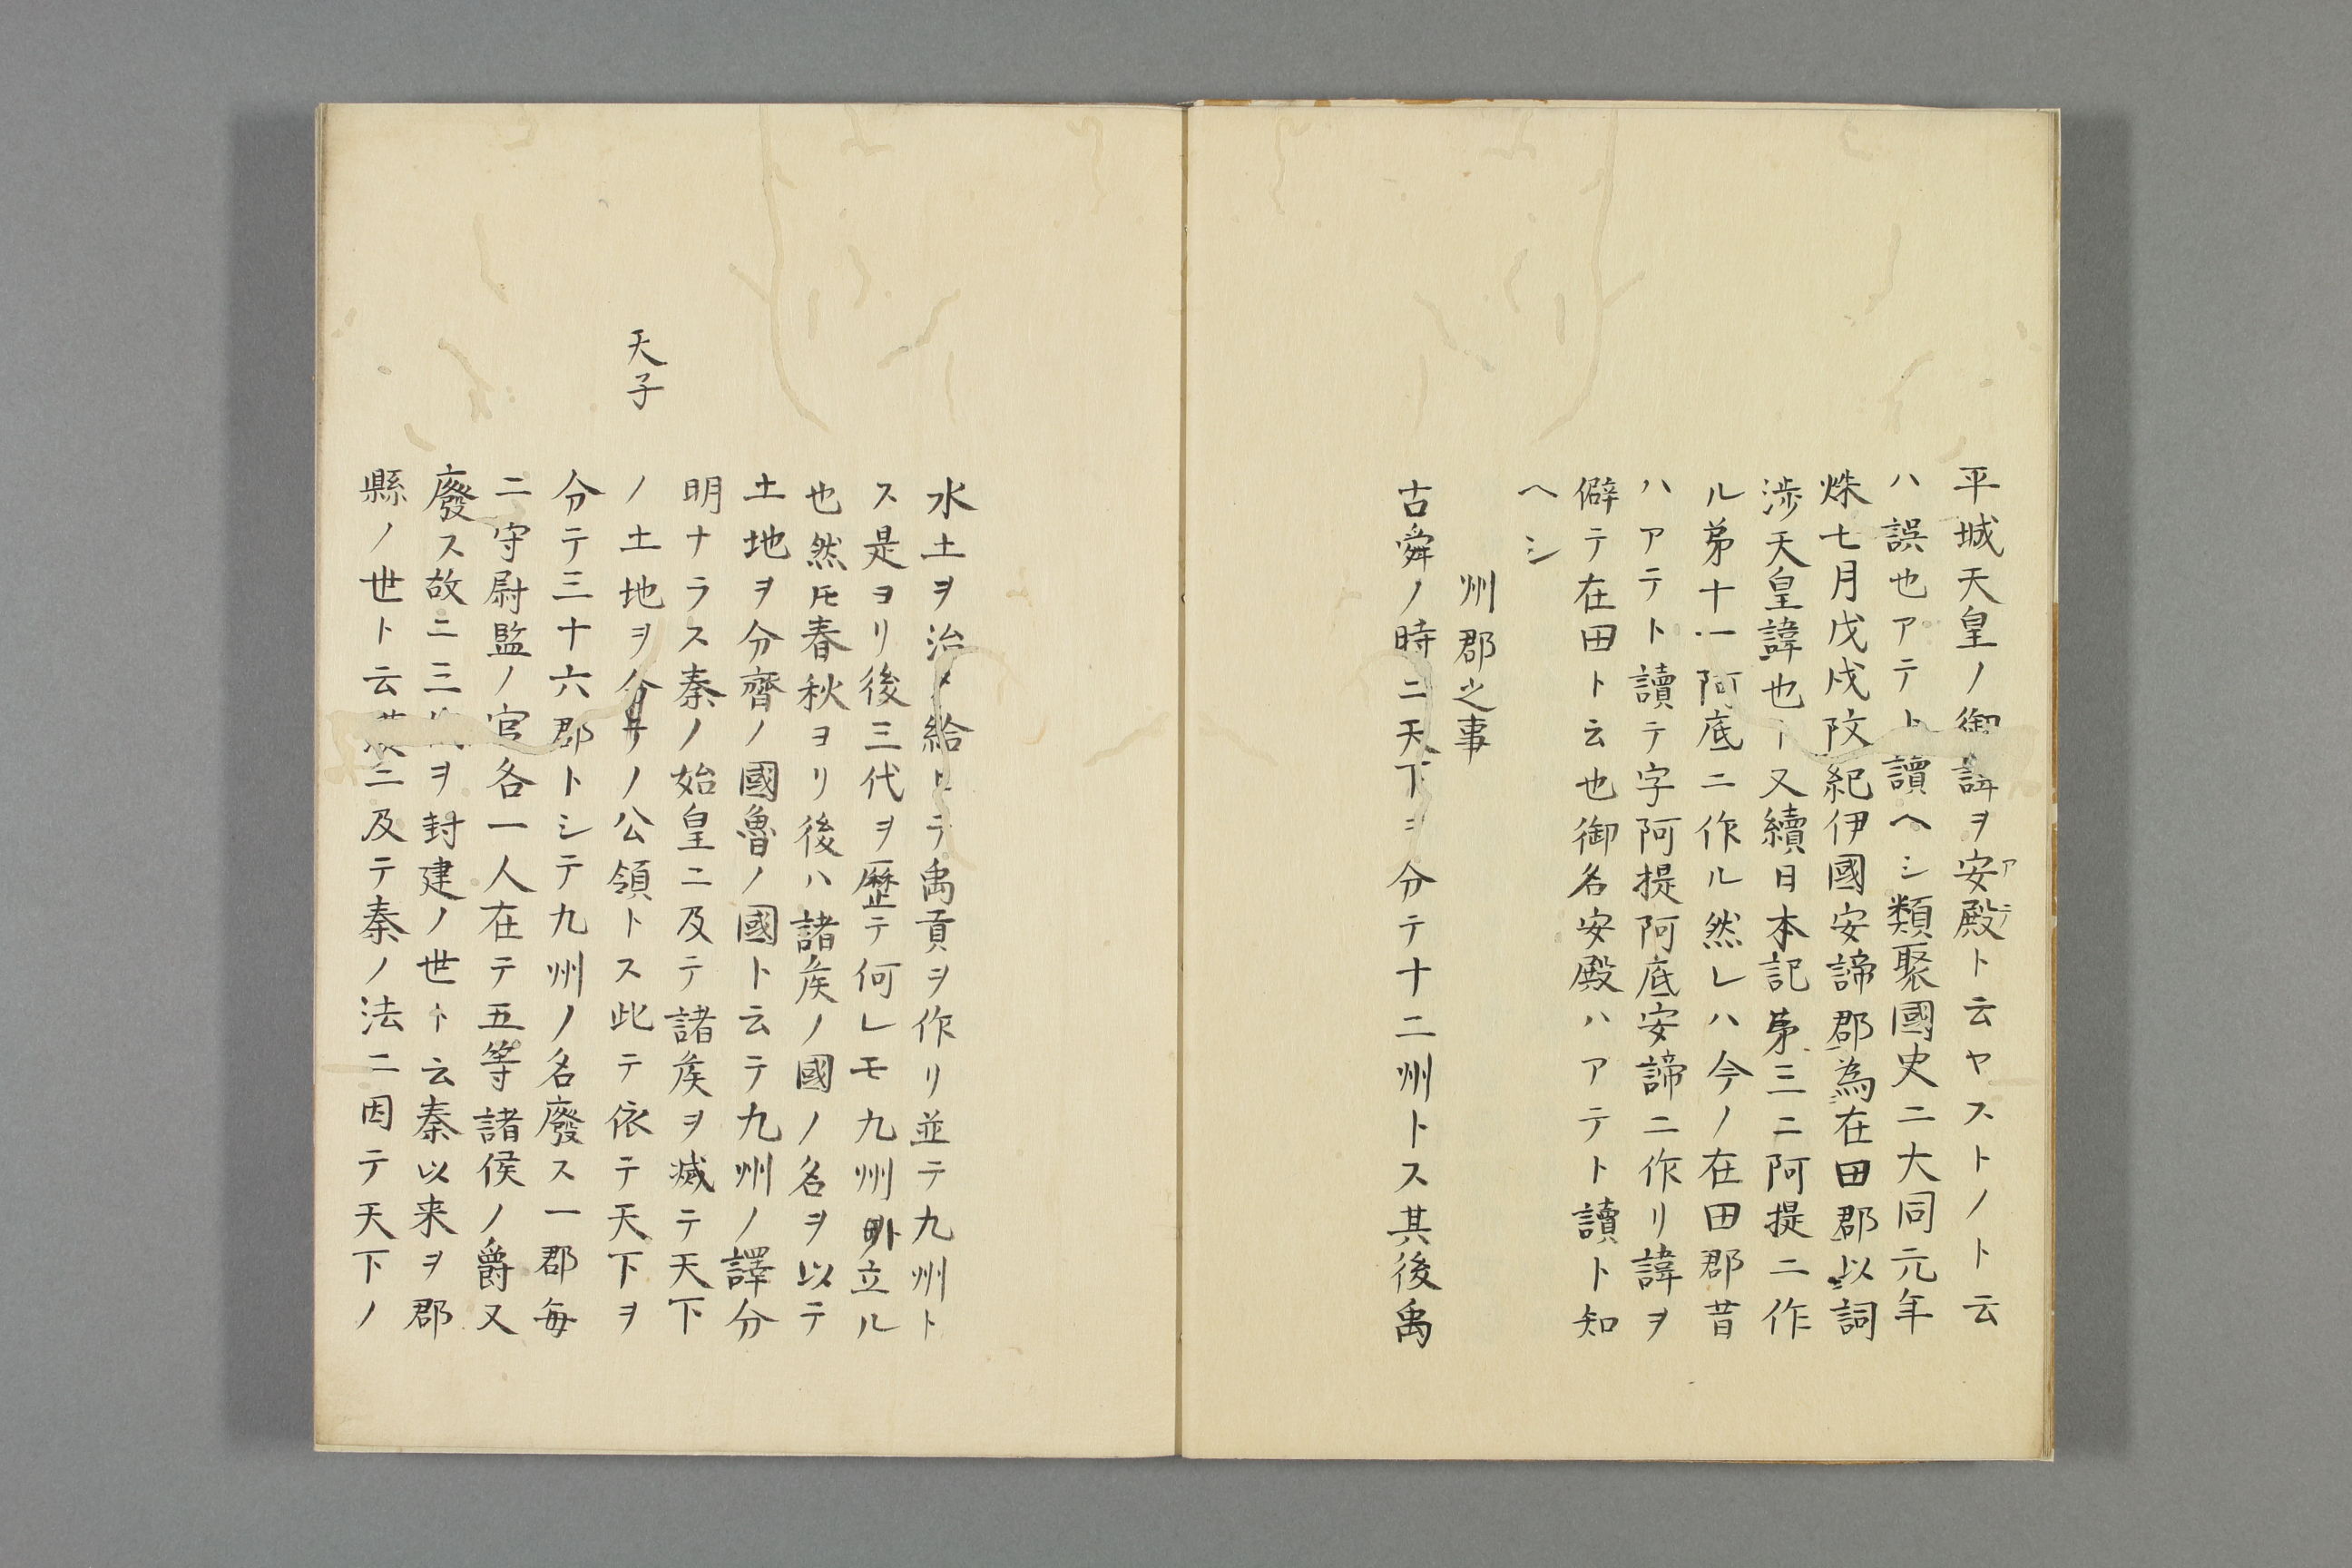 平城天皇ノ御諱ヲ安殿ト云ヤストノト云
アテ
ハ誤也アテト讀ヘシ類聚國史ニ大同元年
烁七月戊戍改紀伊國安諦郡為在田郡以詞
渉天皇諱也ト又續日本記第三ニ阿提ニ作
ル第十一阿底ニ作ル然レハ今ノ在田郡昔
ハアテト讀テ字阿提阿底安諦ニ作リ諱ヲ
僻テ在田ト云也御名安殿ハアテト讀ト知
ヘシ
州郡之事
古舜ノ時ニ天下ヲ分テ十二州トス其後禹
水土ヲ治メ給ヒテ禹貢ヲ作リ並テ九州ト
ス是ヨリ後三代ヲ歴テ何レモ九州外立ル
也然𪜈春秋ヨリ後ハ諸矦ノ國ノ名ヲ以テ
土地ヲ分齊ノ國魯ノ國ト云テ九州ノ譯分
明ナラス秦ノ始皇ニ及テ諸矦ヲ滅テ天下
天子
ノ土地ヲ分ノ公領トス此テ依テ天下ヲ
分テ三十六郡トシテ九州ノ名廢ス一郡毎
ニ守尉監ノ官各一人在テ五等諸侯ノ爵又
廢ス故ニ三ヲ封建ノ世ト云秦以来ヲ郡
縣ノ世ト云ニ及テ秦ノ法ニ因テ天下ノ